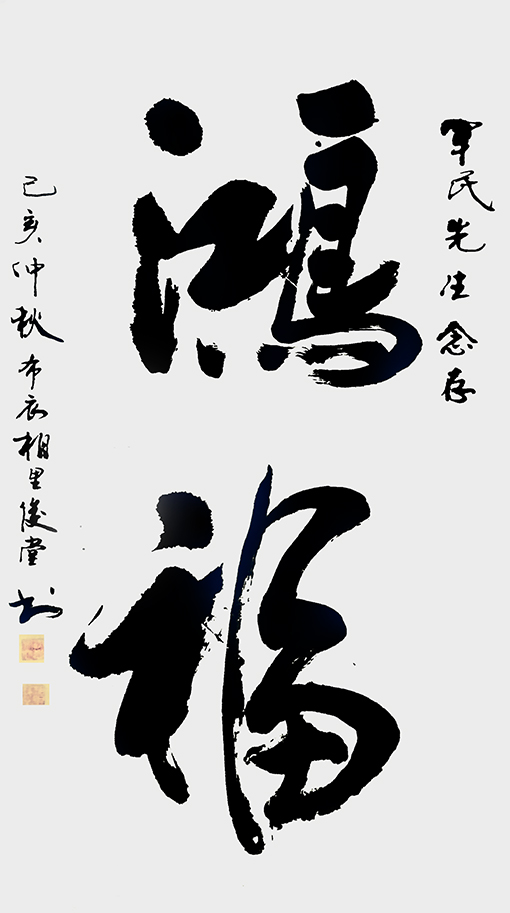 军民先生念存
鸿福
己亥仲秋布衣相里俊堂书